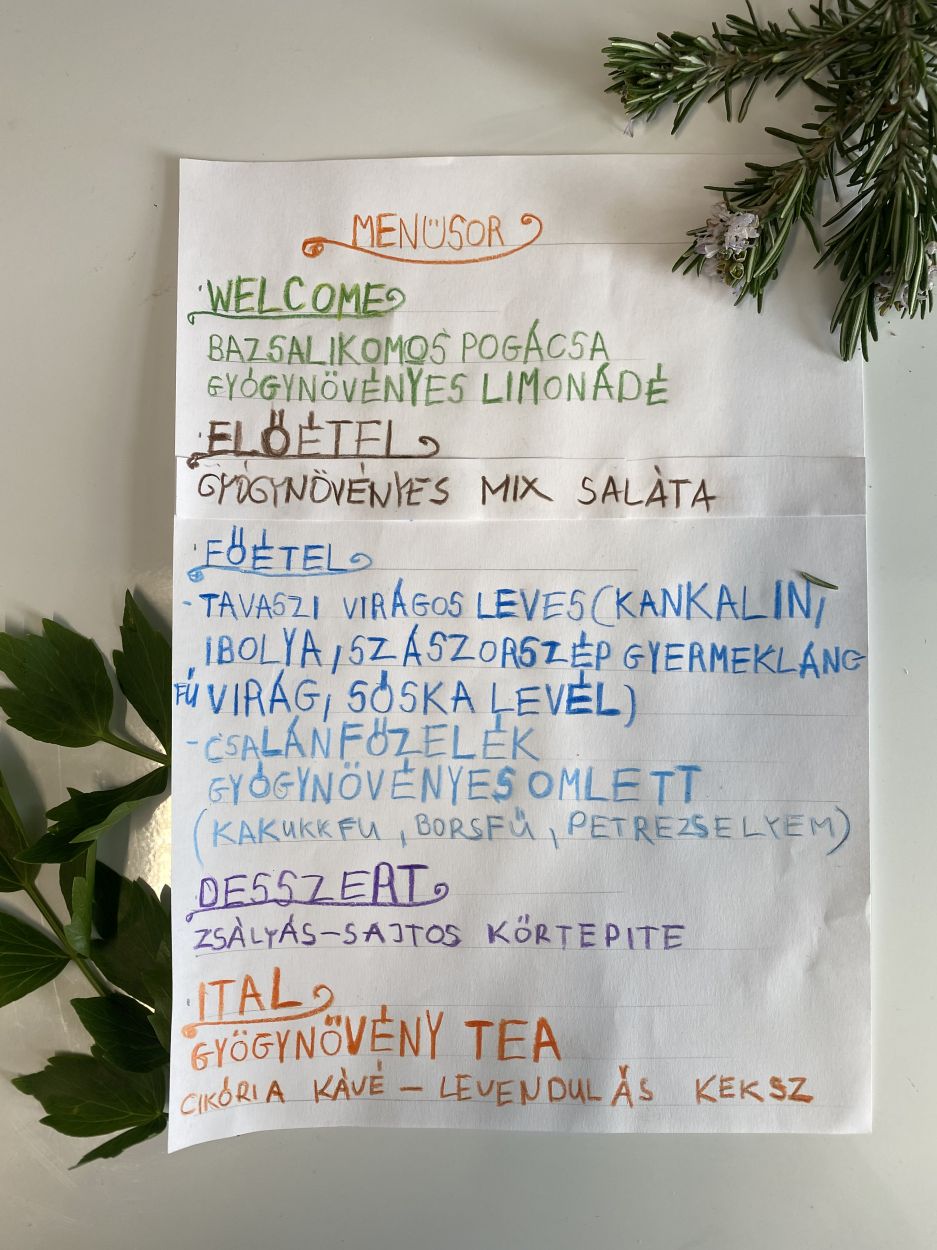 MENÜSOR
WELCOME
BAZSALIKOMOS POGÁCSA
GYÓGYNÖVÉNYES LIMONÁDÉ
ELŐÉTEL
GYÓGYNÖVÉNYES MIX SALÁTA
FŐÉTEL
- TAVASZI VIRÁGOS LEVES (KANKALIN,
IBOLYA, SZÁSZORSZÉP GYERMEKLÁNC
FŰ VIRÁG, SÓSKA LEVÉL)
- CSALÁNFŐZELÉK
GYÓGYNÖVÉNYES OMLETT
(KAKUKKFU, BORSFŰ, PETREZSELYEM)
DESSZERT
ZSÁLYÁS-SAJTOS KÖRTEPITE
ITAL
GYÖGYNÖVÉNY TEA
CIKÓRIA KÁVÉ - LEVENDULÁS KEKSZ